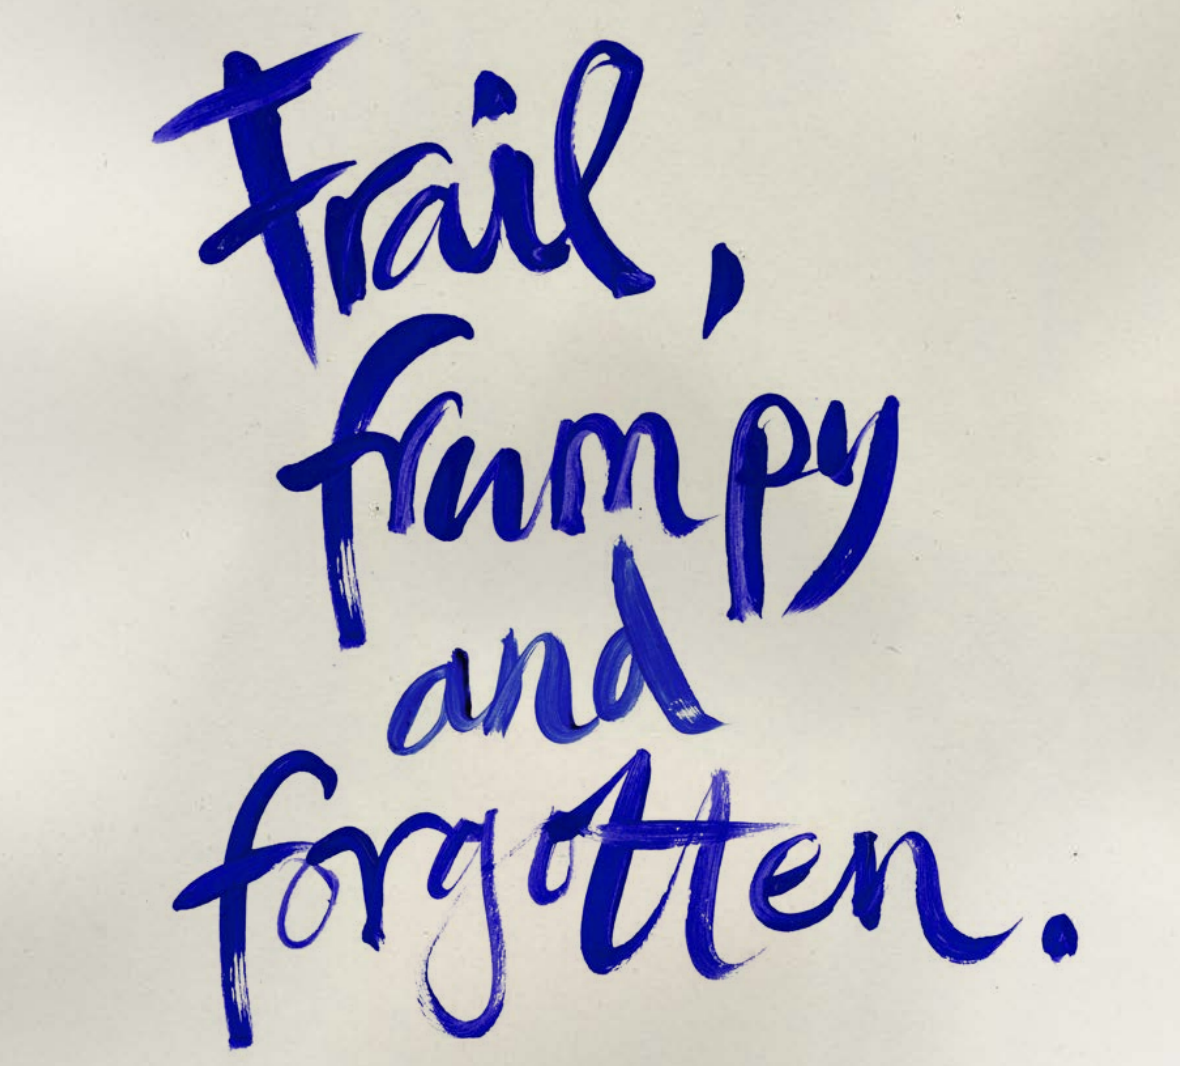 Frail,
frumpy
and
forgotten.